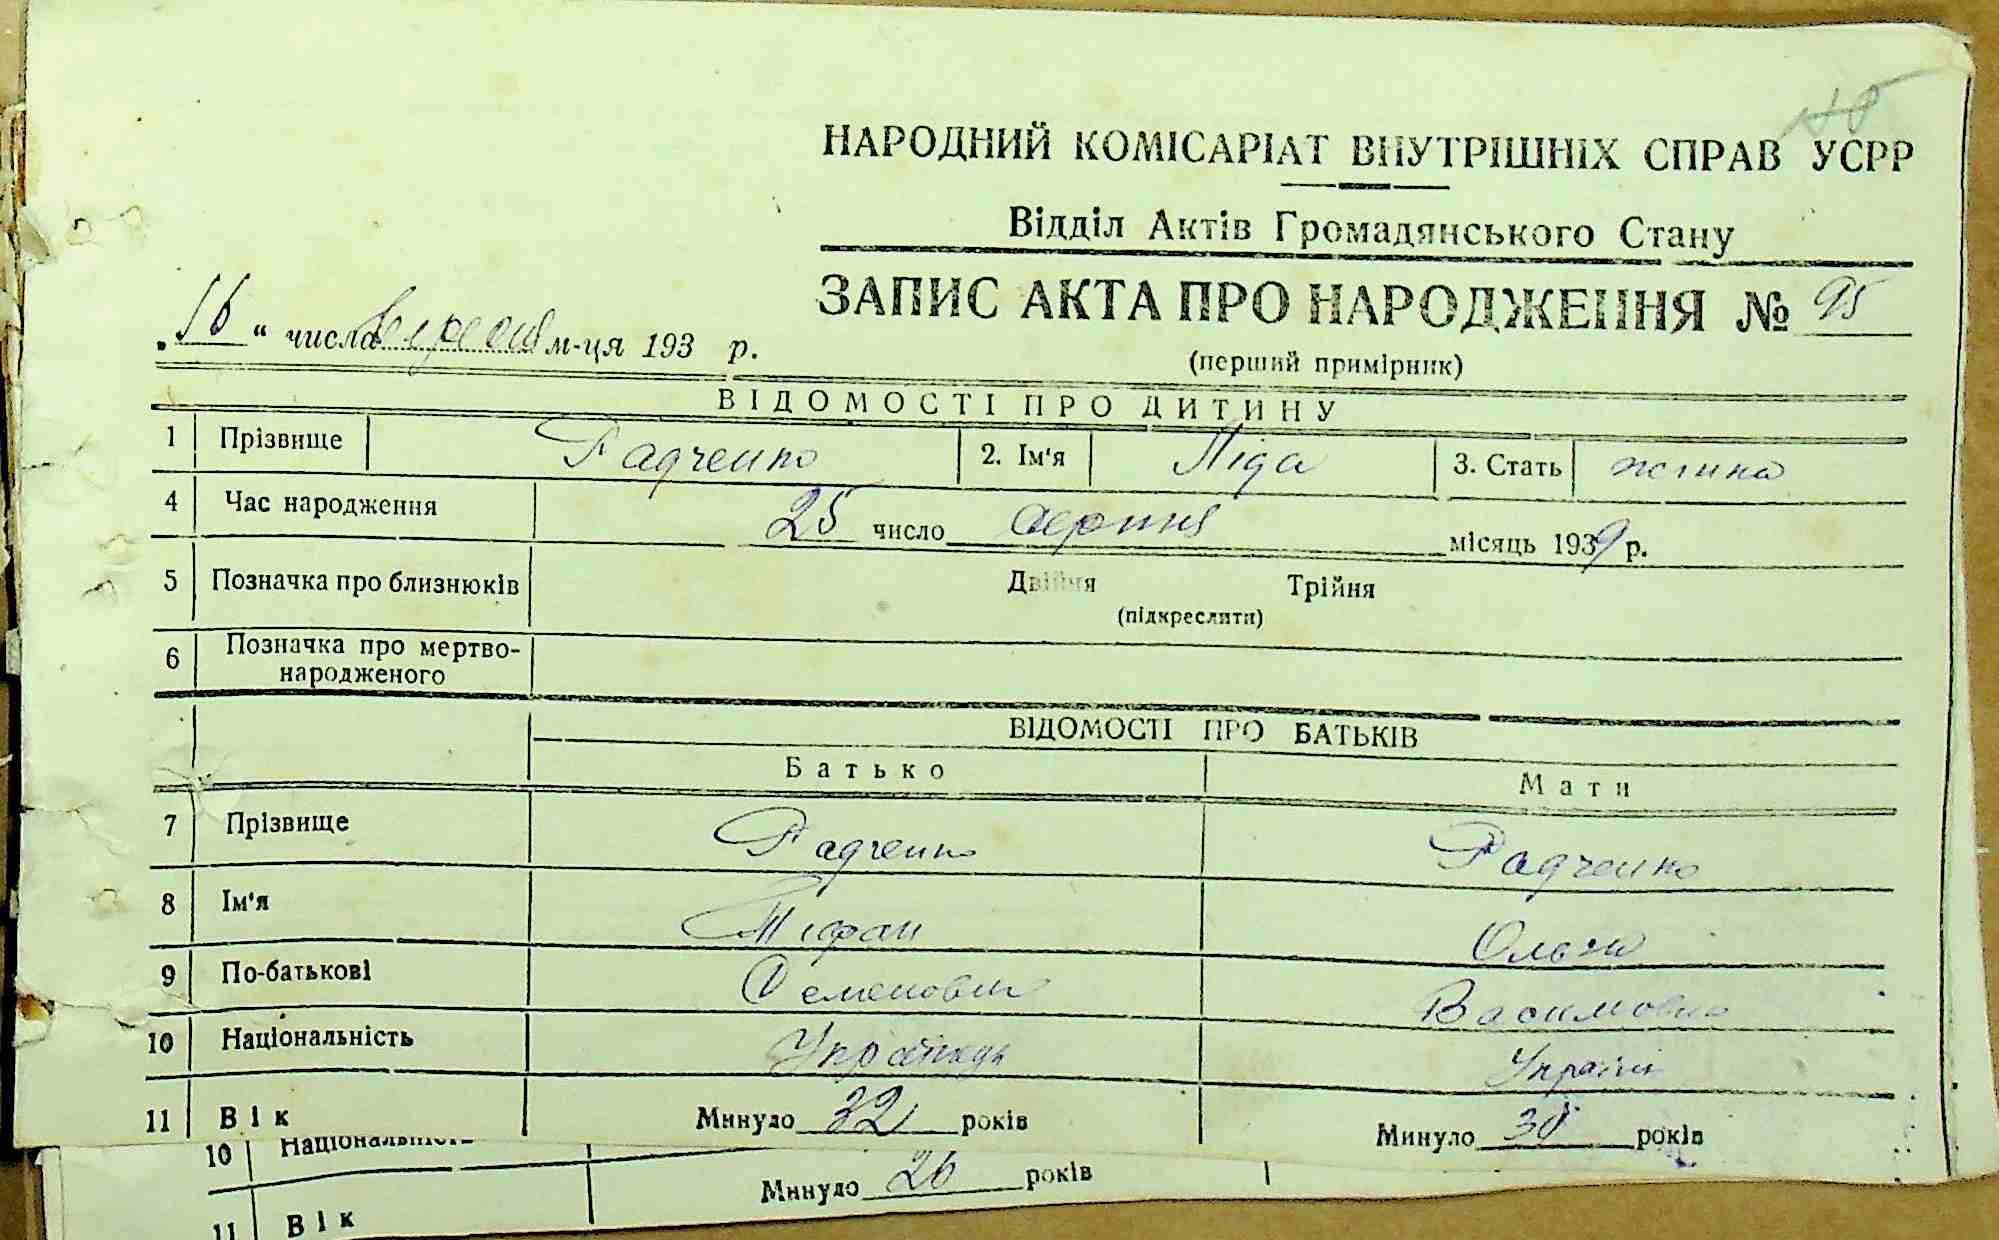 НАРОДНИЙ КОМІСАРІАТ ВНУТРІШНІХ СПРАВ УСРР
Відділ Актів Громадянського Стану
ЗАПИС АКТА ПРО НАРОДЖЕННЯ № 95
(перший примірник)
„16“ числа вересня м-ця 193 р.
ВІДОМОСТІ ПРО ДИТИНУ
1 Прізвище Радченко 2. Ім'я Ліда 3. Стать жіноча
4 Час народження 25 число серпня місяць 1939 р.
5 Позначка про близнюків Двійня Трійня
(підкреслити)
6 Позначка про мертво-
народженого
ВІДОМОСТІ ПРО БАТЬКІВ
Батько Мати
7 Прізвище Радченко Радченко
8 Ім'я Ольга
9 По-батькові Семенович Василівна
10 Національність Українець Українк
11 Вік Минуло 32 років Минуло 30 років
10 Національність
Минуло 26 років
11 Вік